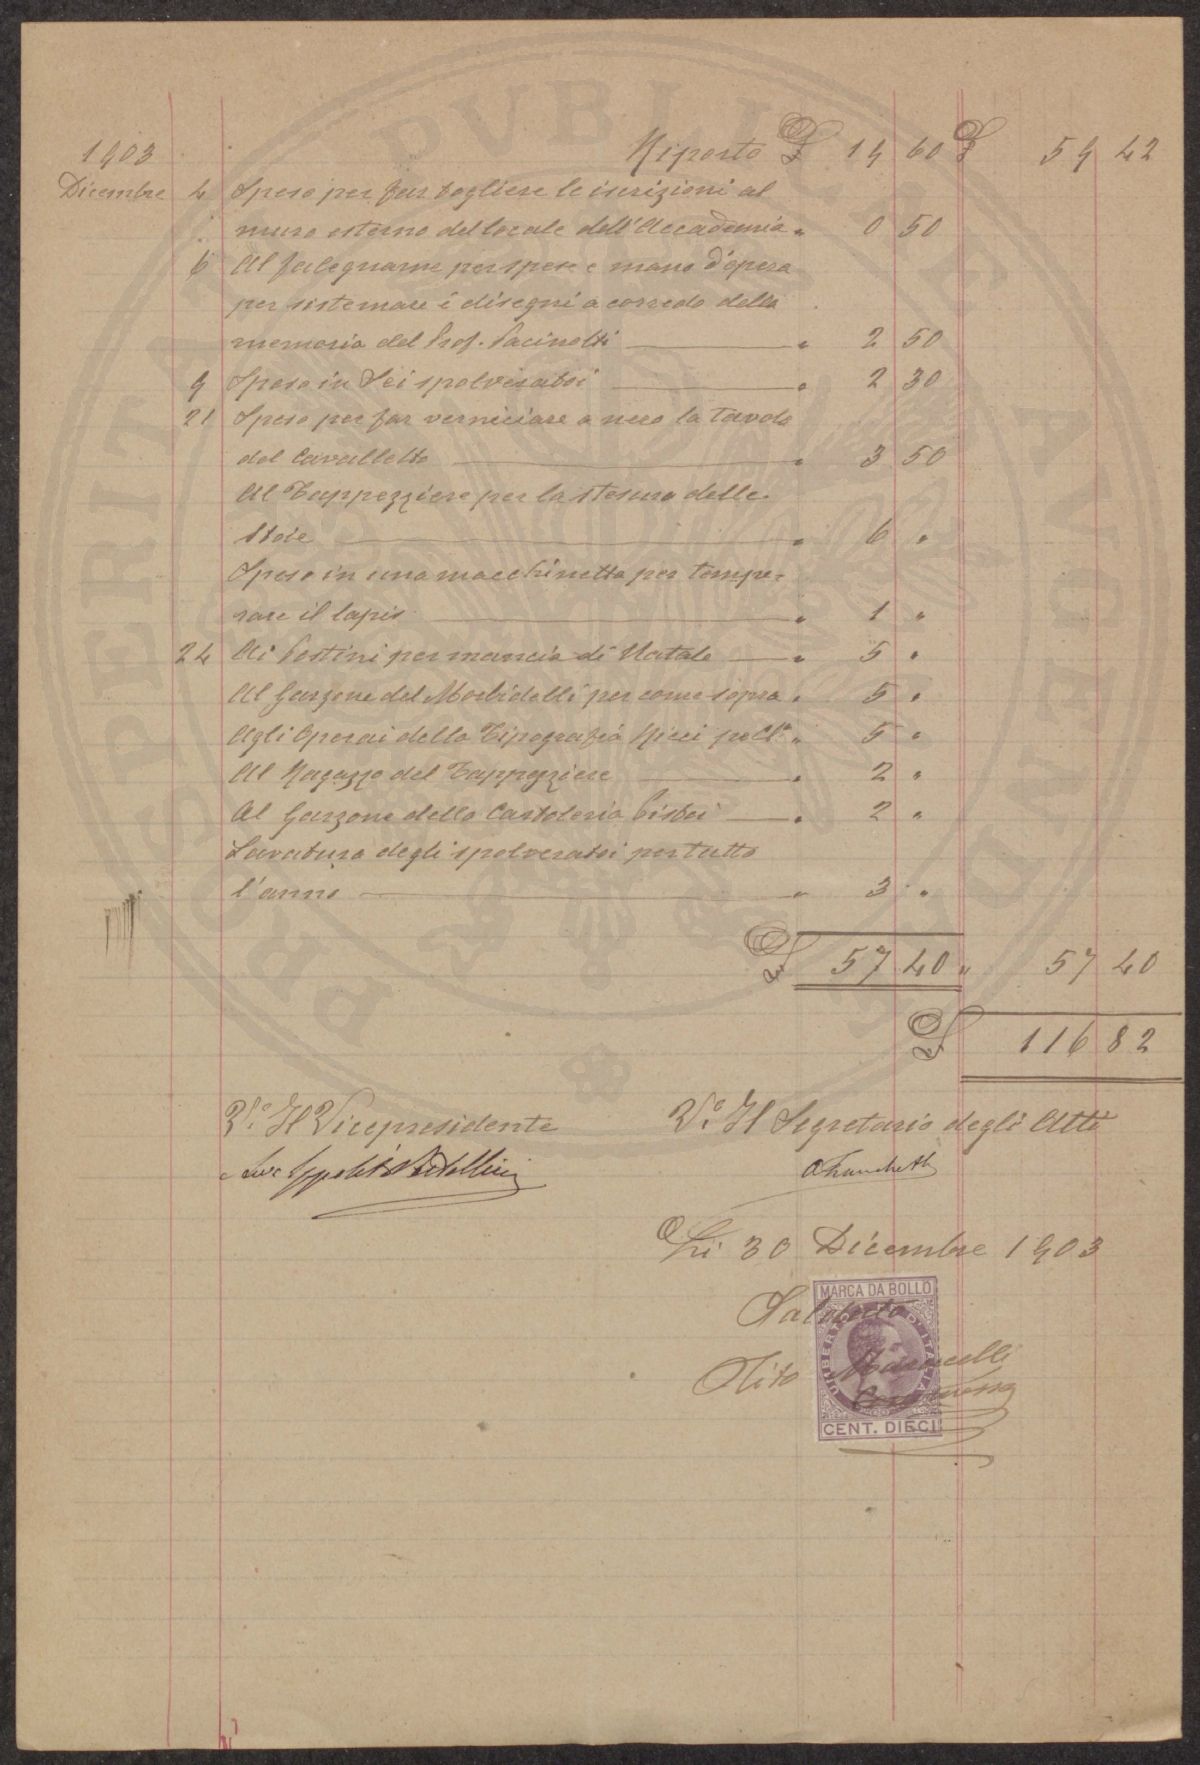 1903 Riporto £ 19 60 £ 59 42
Dicembre 4 Spesa per far togliere le iscrizioni al
muro esterno del locale dell'Accademia " 0 50
6 Al falegname per spese e mano d'opera
per sistemare i disegni a corredo della
memoria del Prof. Pacinotti " 2 50
9 Spesa in Sei spolveratoi " 2 30
21 Spesa per far verniciare a nero la tavola
del Cavalletto " 3 50
Al Tappezziere per la stesura delle
Stoie " 6 "
Spesa in una macchinetta per tempe-
rare il lapis " 1 "
24 Ai Postini per mancia di Natale " 5 "
Al Garzone del Morbidelli per come sopra " 5 "
Agli Operai della Tipografia Ricci " 5 "
Al Ragazzo del Tappezziere " 2 "
Al Garzone della Cartoleria Pistoi " 2 "
Lavatura degli spolveratoi per tutto
l'anno " 3 "
£ 57 40 " 57 40
£ 116 82
V.° Il Vicepresidente V.° Il Segretario degli Atti
Li 30 Dicembre 1903
MARCA DA BOLLO
UMBERTO I RE D'ITALIA
Tito
CENT. DIECI
PROSPERITATI PVBLICAE AVGENDAE